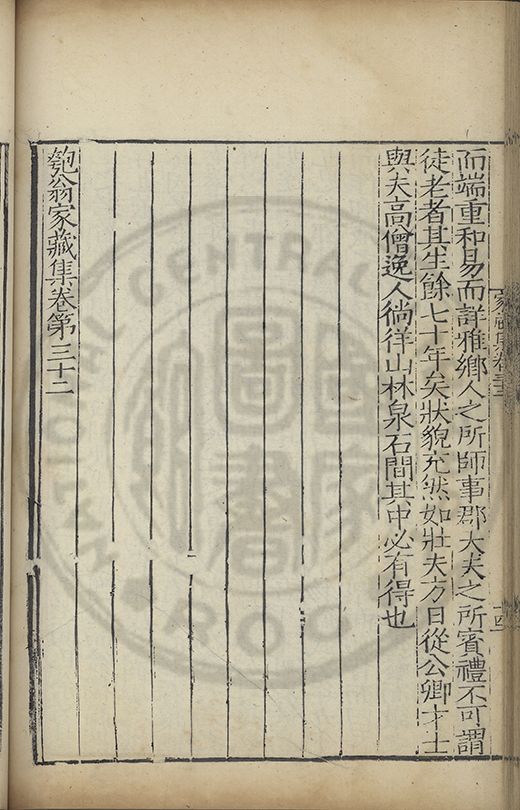 而端重和易而詳雅鄉人之所師事郡大夫之所賓禮不可謂
徒老者其生餘七十年矣狀貌充然如壯夫方日從公卿才士
與夫高僧逸人徜徉山林泉石間其中必有得也
匏翁家藏集卷第三十二